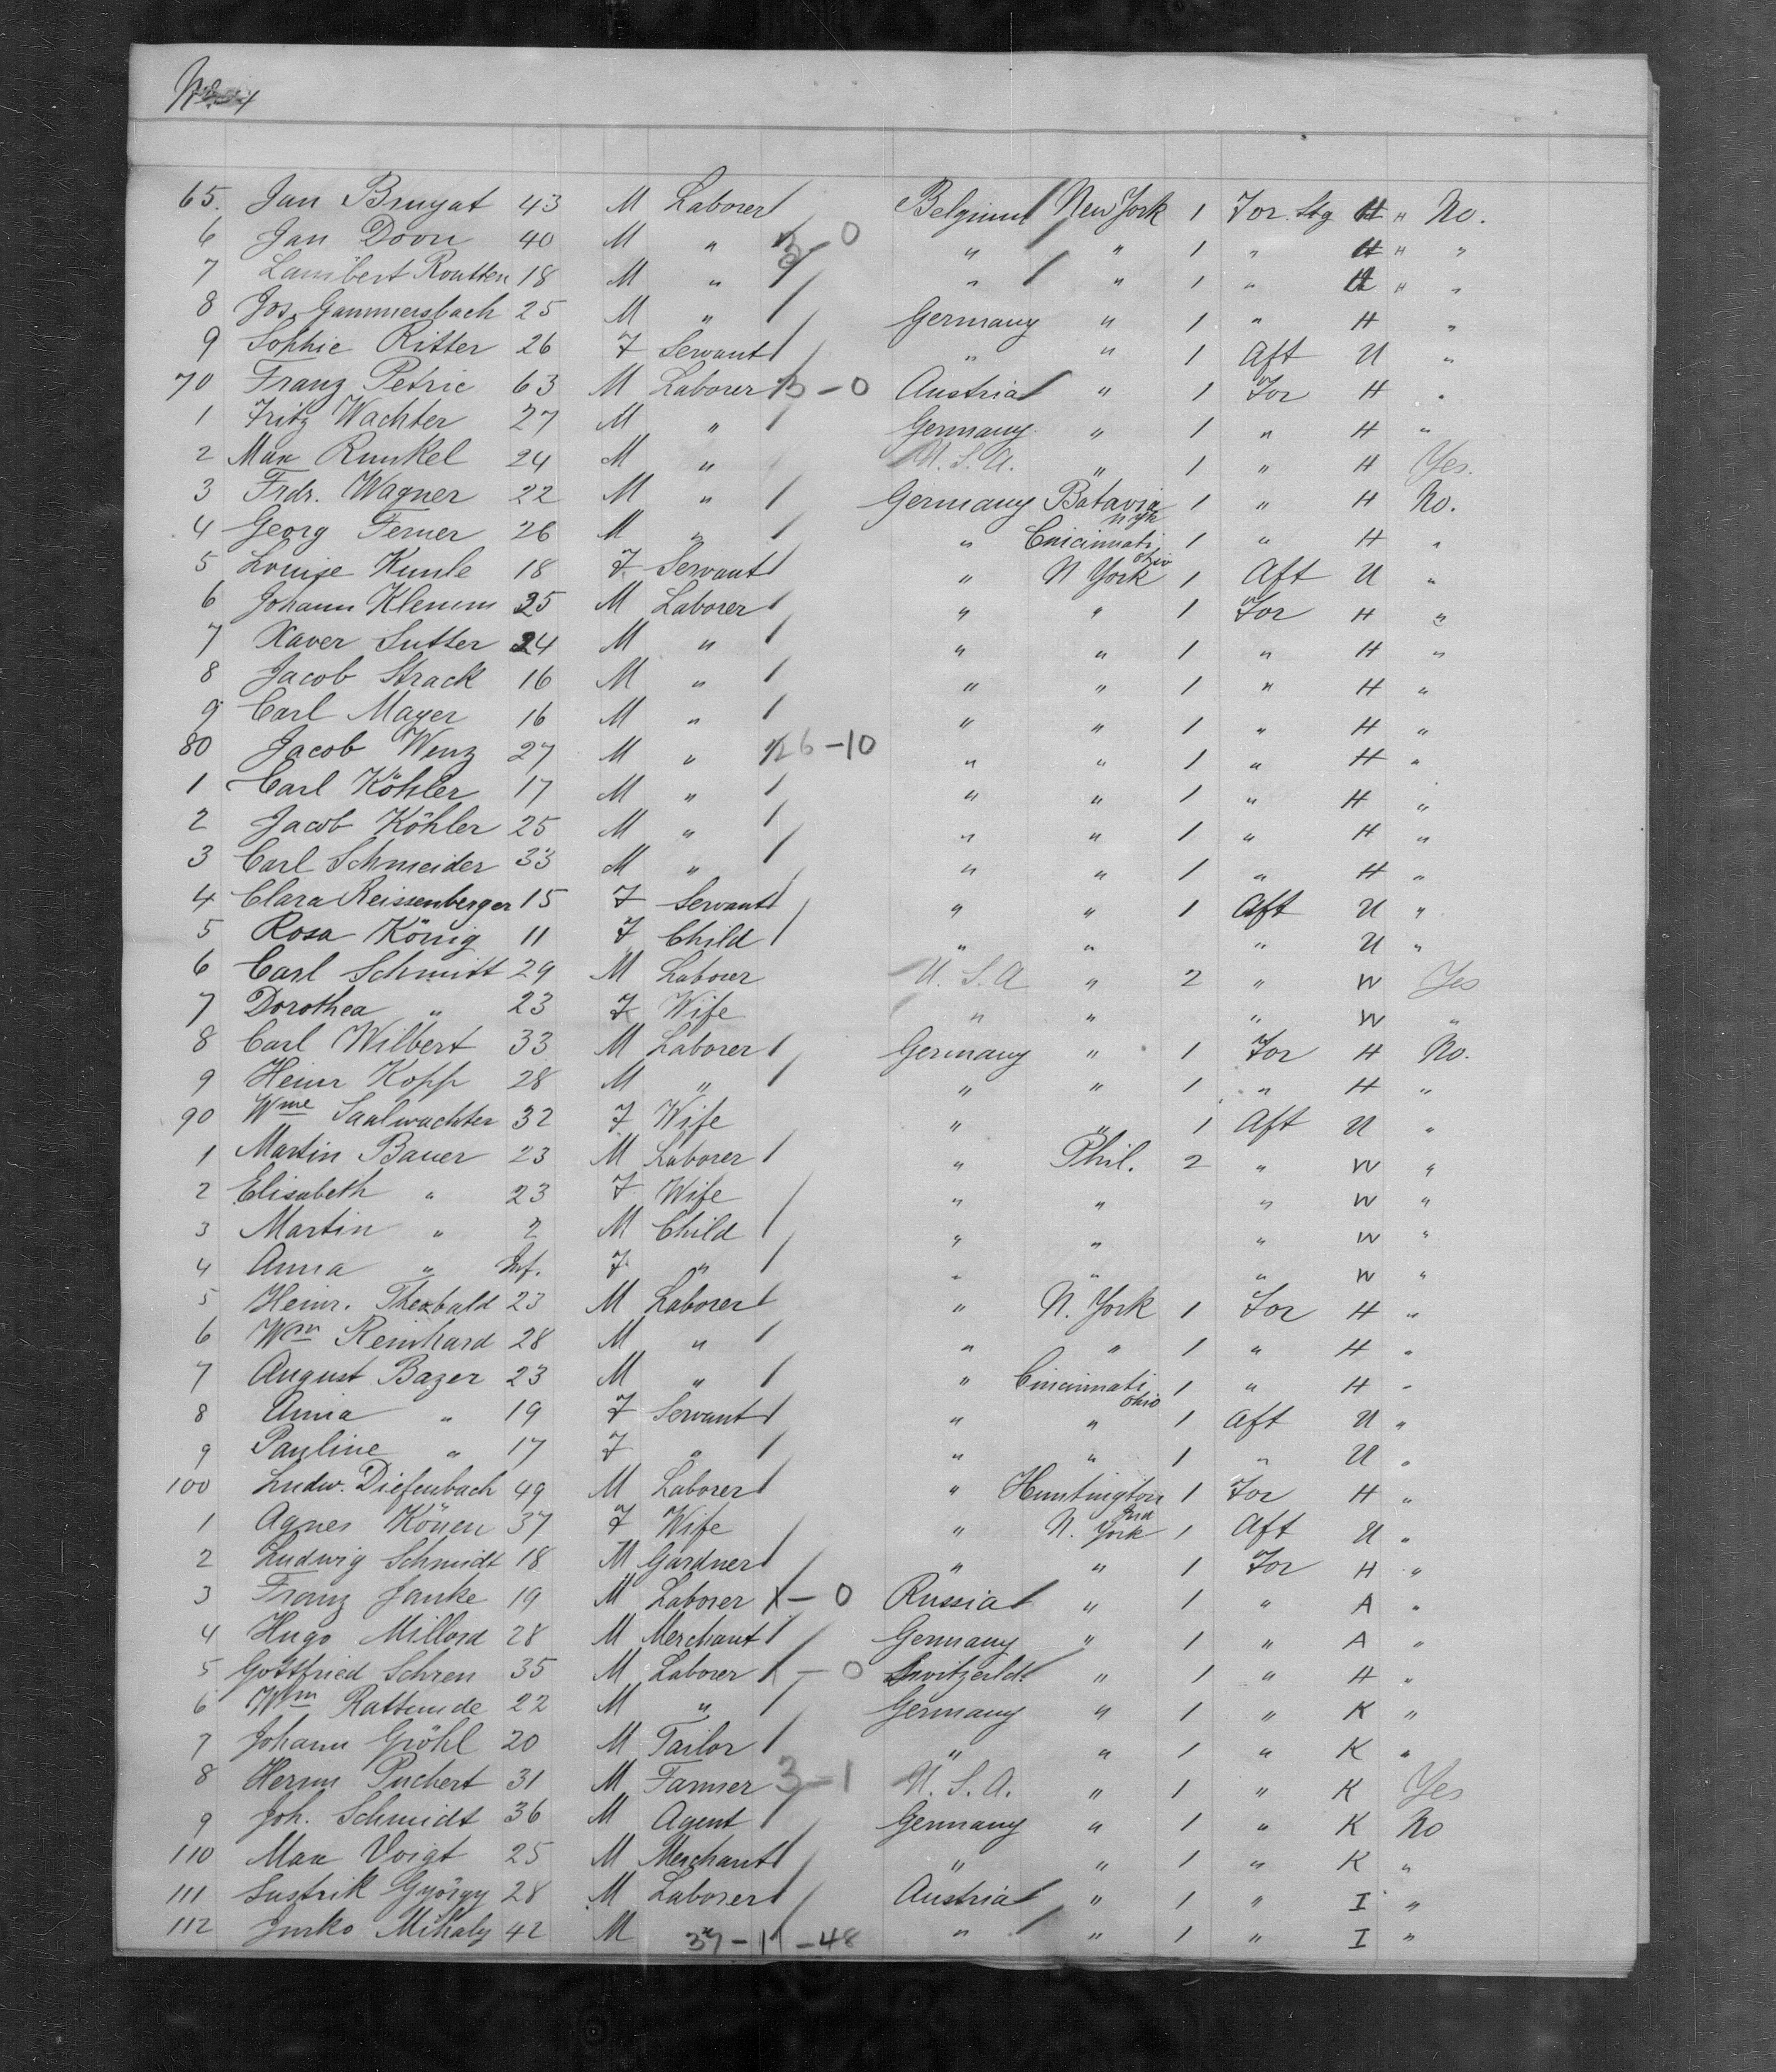 No 4
65. Jan Bruyat 43 M Laborer Belgium New York 1 For. Stg H " No.
6 Jan Doon 40 M " 3-0 " " 1 " H " "
7 Lambert Routten 18 M " " " 1 " H " "
8 Jos. Gammersbach 25 M " Germany " 1 " H "
9 Sophie Ritter 26 F Servant " " 1 Aft U "
70 Franz Petric 63 M Laborer 3-0 Austria " 1 For H "
1 Fritz Wachter 27 M " Germany " 1 " H "
2 Max Runkel 24 M " U.S.A. " 1 " H Yes.
3 Frdr. Wagner 22 M " Germany Batavia 1 " H No.
4 Georg Ferner 26 M " " Cincinnati Ohio 1 " H "
5 Louise Kunle 18 F Servant " N York 1 Aft U "
6 Johann Klemm 25 M Laborer " " 1 For H "
7 Xaver Sutter 24 M " " " 1 " H "
8 Jacob Strack 16 M " " " 1 " H "
9 Carl Mayer 16 M " " " 1 " H "
80 Jacob Wenz 27 M " 26-10 " " 1 " H "
1 Carl Köhler 17 M " " " 1 " H "
2 Jacob Köhler 25 M " " " 1 " H "
3 Carl Schneider 33 M " " " 1 " H "
4 Clara Reissenberger 15 F Servant " " 1 Aft U "
5 Rosa König 11 F Child " " " U "
6 Carl Schmitt 29 M Laborer U.S.A " 2 " W Yes
7 Dorothea " 23 F Wife " " " W "
8 Carl Wilbert 33 M Laborer Germany " 1 For H No.
9 Heinr Kopp 28 M " " " 1 " H "
90 Wme Saalwachter 32 F Wife " " 1 Aft U "
1 Martin Bauer 23 M Laborer " Phil. 2 " W "
2 Elisabeth " 23 F Wife " " " W "
3 Martin " 2 M Child " " " W "
4 Anna " Inf. F " " " " W "
5 Heinr. Theobald 23 M Laborer " N. York 1 For H "
6 Wm Reinhard 28 M " " " 1 " H "
7 August Bazer 23 M " " Cincinnati Ohio 1 " H "
8 Anna " 19 F Servant " " 1 Aft U "
9 Pauline " 17 F " " " 1 " U "
100 Ludw. Diefenbach 49 M Laborer " Huntington Ind 1 For H "
1 Agnes Könen 37 F Wife " N. York 1 Aft U "
2 Ludwig Schmidt 18 M Gardner " " 1 For H "
3 Franz Janke 19 M Laborer X-0 Russia " 1 " A "
4 Hugo Millord 28 M Merchant Germany " 1 " A "
5 Gottfried Schren 35 M Laborer -0 Switzerld. " 1 " H "
6 Wm Rattunde 22 M " Germany " 1 " K "
7 Johann Gröhl 20 M Tailor " " 1 " K "
8 Herm Puchert 31 M Farmer 3-1 U.S.A. " 1 " K Yes
9 Joh. Schmidt 36 M Agent Germany " 1 " K No
110 Max Voigt 25 M Merchant " " 1 " K "
111 Sustrik György 28 M Laborer Austria " 1 " I "
112 Jurko Mihaly 42 M " " " 1 " I "
37-11-48